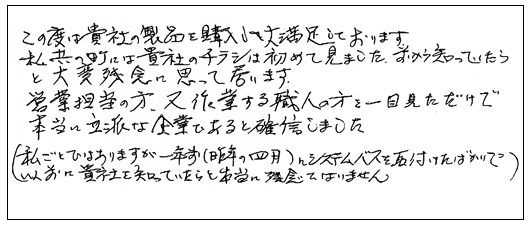 この度は貴社の製品を購入し大満足しております
私共の町には貴社のチラシは初めて見ました、前から知っていたら
と大変残念に思って居ります。
営業担当の方、又作業する職人の方を一目見ただけで
本当に立派な企業であると確信しました
(私ごとではありますが一年前(昨年の四月)にシステムバスを取付けたばかりで
以前に貴社を知っていたらと本当に残念でなりません)